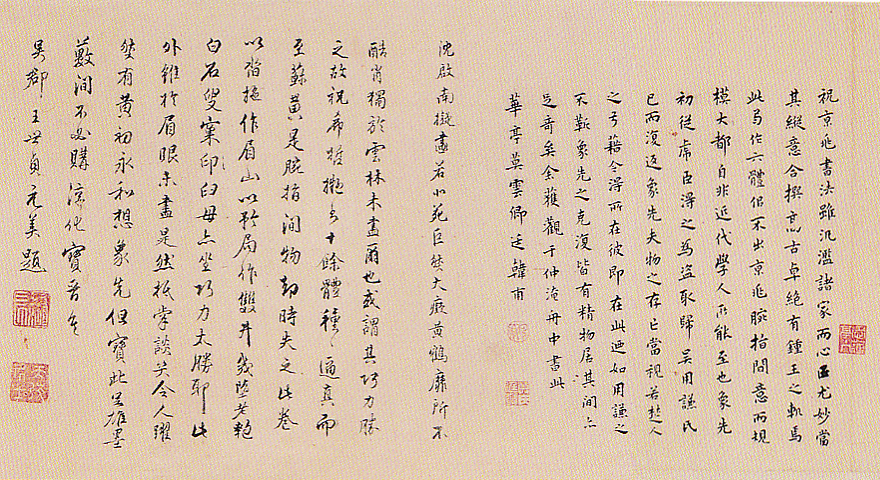 祝京兆書法雖汎濫諸家而心且尤妙當
其縱意合撰高古卓絕有鍾王之軌焉
此為作六體俱不出京兆腕指間意而規
模大都自非近代學人所能至也象先
初從虎臣得之為盜取歸吳用謙氏
已而復返象先夫物之存亡當視若楚人
之弓藉令得所在彼即在此迺如用謙之
不靳象先之克復皆有精物居其間亦
足奇矣余雅觀于仲淹舟中書此
華亭莫雲卿廷韓甫
沈啟南擬畫若北苑巨然大癡黃鶴靡所不
酷肖獨於雲林未盡爾也或謂其巧力勝
之故祝希哲擬書十餘體種種逼真而
至蘇黃是腕指間物却時失之此卷
以作眉山以矜局作雙井幾墮老
白石叟窠臼毋亦坐巧力太勝耶此
外雖於眉眼未盡是然抵掌談笑令人躍
然有黃初永和想象先但寶此足雄墨
藪間不必購淳化寶晉矣
吳郡王世貞元美題